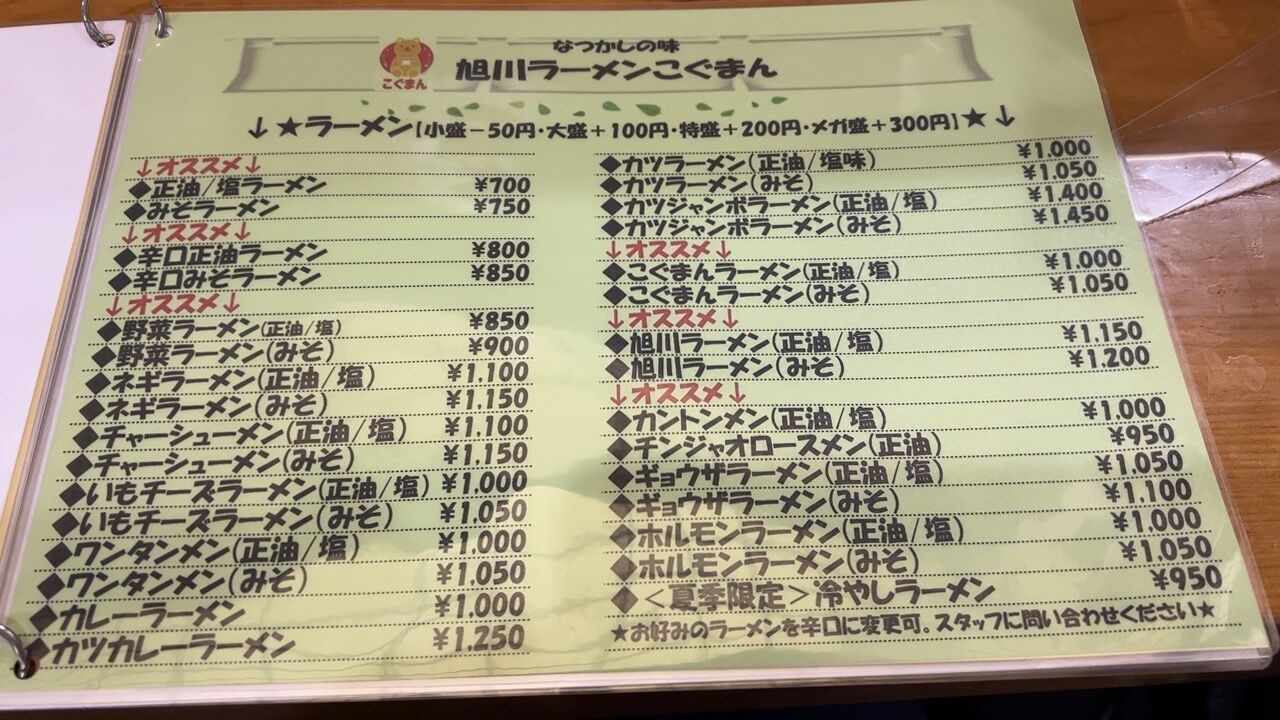 なつかしの味
旭川ラーメンこぐまん
こぐまん
↓★ラーメン[小盛－50円・大盛＋100円・特盛＋200円・メガ盛＋300円]★↓
↓オススメ↓
◆正油/塩ラーメン ¥700
◆みそラーメン ¥750
↓オススメ↓
◆辛口正油ラーメン ¥800
◆辛口みそラーメン ¥850
↓オススメ↓
◆野菜ラーメン(正油/塩) ¥850
◆野菜ラーメン(みそ) ¥900
◆ネギラーメン(正油/塩) ¥1,100
◆ネギラーメン(みそ) ¥1,150
◆チャーシューメン(正油/塩) ¥1,100
◆チャーシューメン(みそ) ¥1,150
◆いもチーズラーメン(正油/塩) ¥1,000
◆いもチーズラーメン(みそ) ¥1,050
◆ワンタンメン(正油/塩) ¥1,000
◆ワンタンメン(みそ) ¥1,050
◆カレーラーメン ¥1,000
◆カツカレーラーメン ¥1,250
◆カツラーメン(正油/塩味) ¥1,000
◆カツラーメン(みそ) ¥1,050
◆カツジャンボラーメン(正油/塩) ¥1,400
◆カツジャンボラーメン(みそ) ¥1,450
↓オススメ↓
◆こぐまんラーメン(正油/塩) ¥1,000
◆こぐまんラーメン(みそ) ¥1,050
↓オススメ↓
◆旭川ラーメン(正油/塩) ¥1,150
◆旭川ラーメン(みそ) ¥1,200
↓オススメ↓
◆カントンメン(正油/塩) ¥1,000
◆チンジャオロースメン(正油) ¥950
◆ギョウザラーメン(正油/塩) ¥1,050
◆ギョウザラーメン(みそ) ¥1,100
◆ホルモンラーメン(正油/塩) ¥1,000
◆ホルモンラーメン(みそ) ¥1,050
◆＜夏季限定＞冷やしラーメン ¥950
★お好みのラーメンを辛口に変更可。スタッフに問い合わせください★